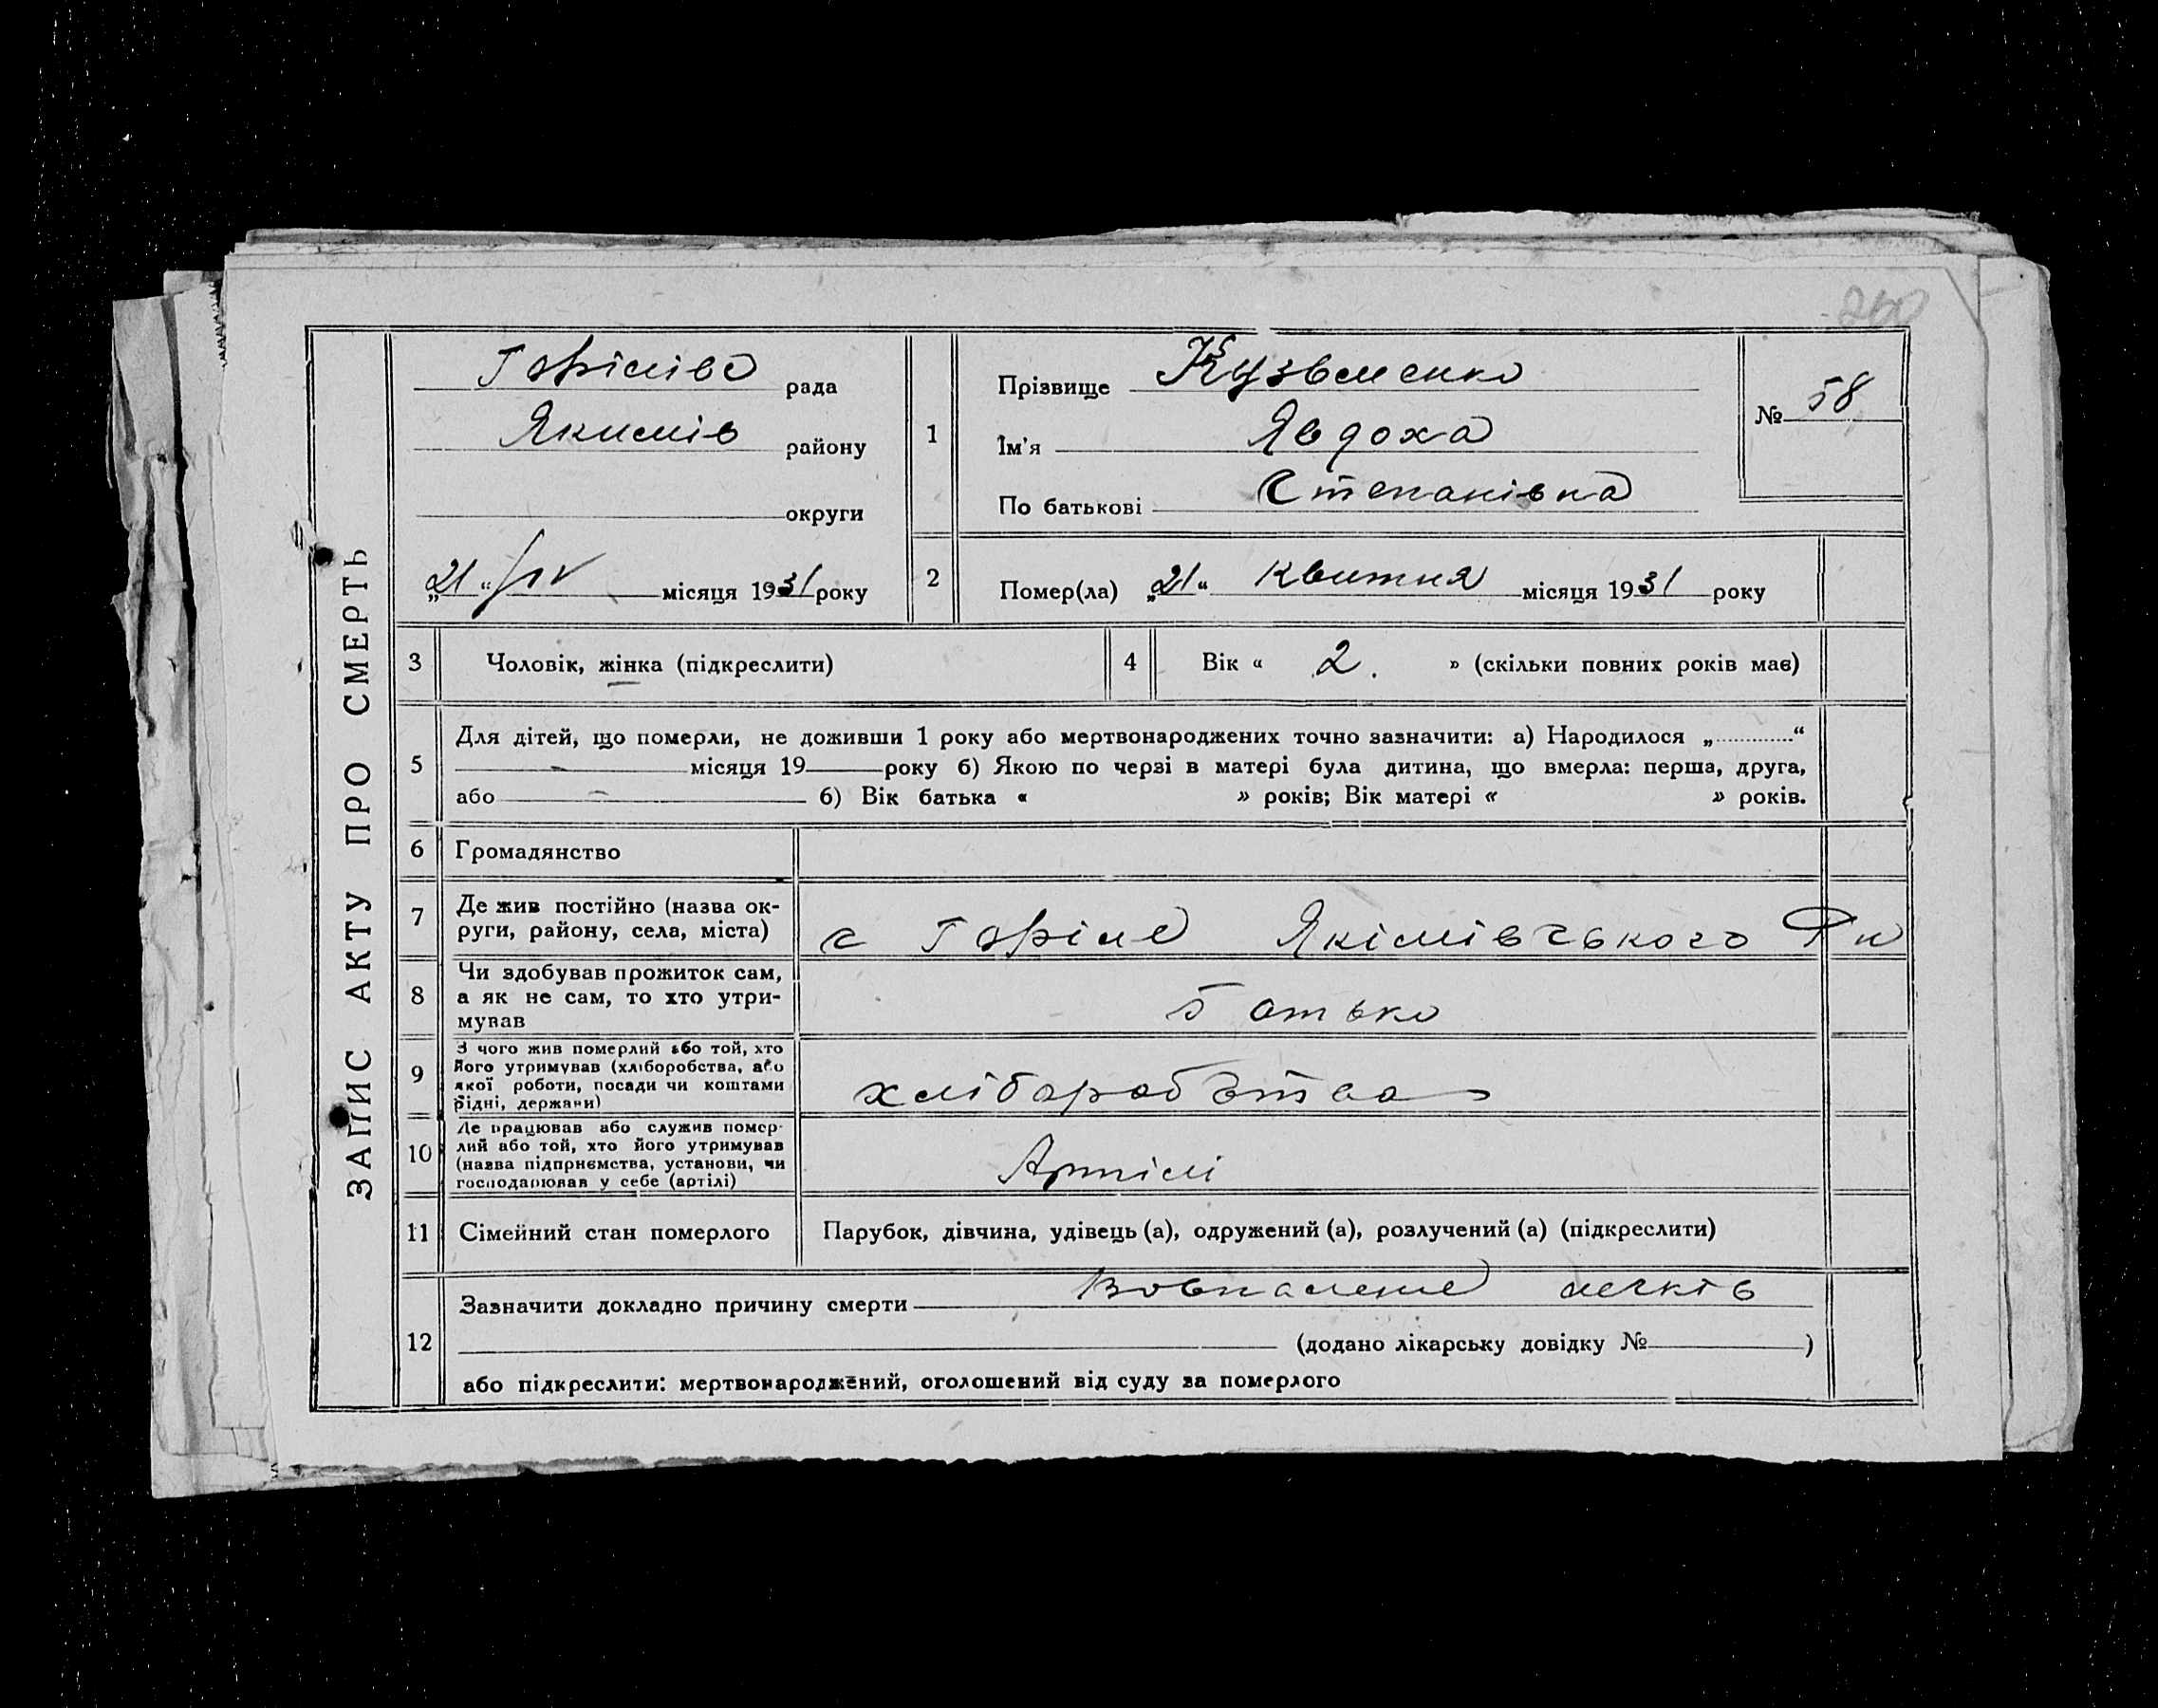 260
ЗАПИС АКТУ ПРО СМЕРТЬ
Горілів рада
Якимів району
округи
„21“ IV місяця 1931 року
1
Прізвище Кузьменко
Ім'я Явдоха
По батькові Степанівна
№ 58
2 Помер(ла) „21“ Квитня місяця 1931 року
3 Чоловік, жінка (підкреслити)
4 Вік « 2. » (скільки повних років має)
5 Для дітей, що померли, не доживши 1 року або мертвонароджених точно зазначити: а) Народилося „ “
місяця 19 року б) Якою по черзі в матері була дитина, що вмерла: перша, друга,
або 6) Вік батька « » років; Вік матері « » років.
6 Громадянство
7 Де жив постійно (назва ок-
руги, району, села, міста) с Горіле Якімівського Рн
8 Чи здобував прожиток сам,
а як не сам, то хто утри-
мував
батько
9 З чого жив померлий або той, хто
його утримував (хліборобства, або
якої роботи, посади чи коштами
рідні, держави)
хлібаробства
10 Де працював або служив помер-
лий або той, хто його утримував
(назва підприємства, установи, чи
господарював у себе (артілі)
Артілі
11 Сімейний стан померлого Парубок, дівчина, удівець (а), одружений (а), розлучений (а) (підкреслити)
12 Зазначити докладно причину смерти Вовпаление легків
(додано лікарську довідку № )
або підкреслити: мертвонароджений, оголошений від суду за померлого